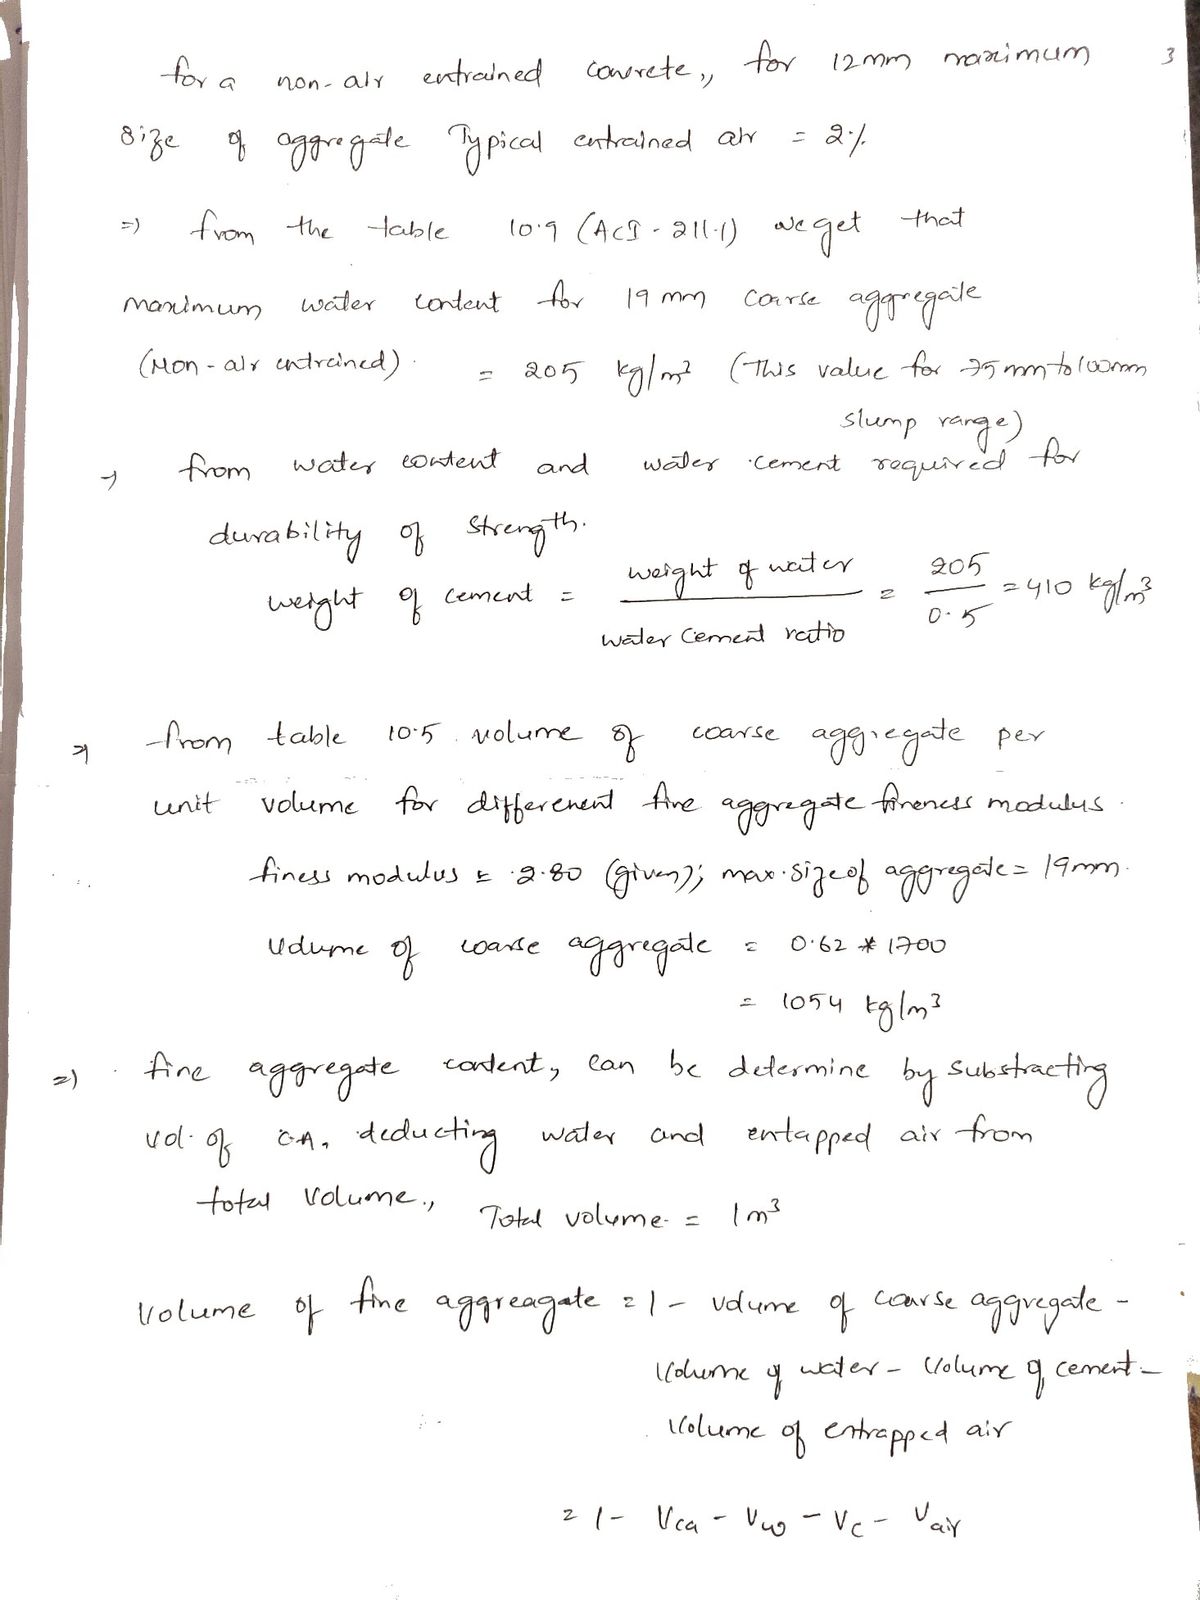 3
for a non-air entrained concrete,, for 12mm maximum
size of aggregate Typical entrained air = 2%
=) from the table 10.9 (ACI - 211.1) we get that
maximum water content for 19 mm coarse aggregate
(Non-air entrained). = 205 kg/m² (This value for 75 mm to 100mm
slump range)
from water content and water cement required for
durability of strength.
weight of cement = weight of water / water cement ratio = 205 / 0.5 = 410 kg/m³
from table 10.5 volume of coarse aggregate per
unit volume for differenent fine aggregate fineness modulus.
finess modulus = 2.80 (given); max. size of aggregate = 19mm.
volume of coarse aggregate = 0.62 * 1700
= 1054 kg/m³
=) fine aggregate content, can be determine by substracting
vol. of C.A, deducting water and entapped air from
total volume., Total volume = 1 m³
Volume of fine aggreagate = 1 - volume of coarse aggregate -
Volume of water - Volume of cement -
Volume of entrapped air
= 1 - Vca - Vw - Vc - Vair